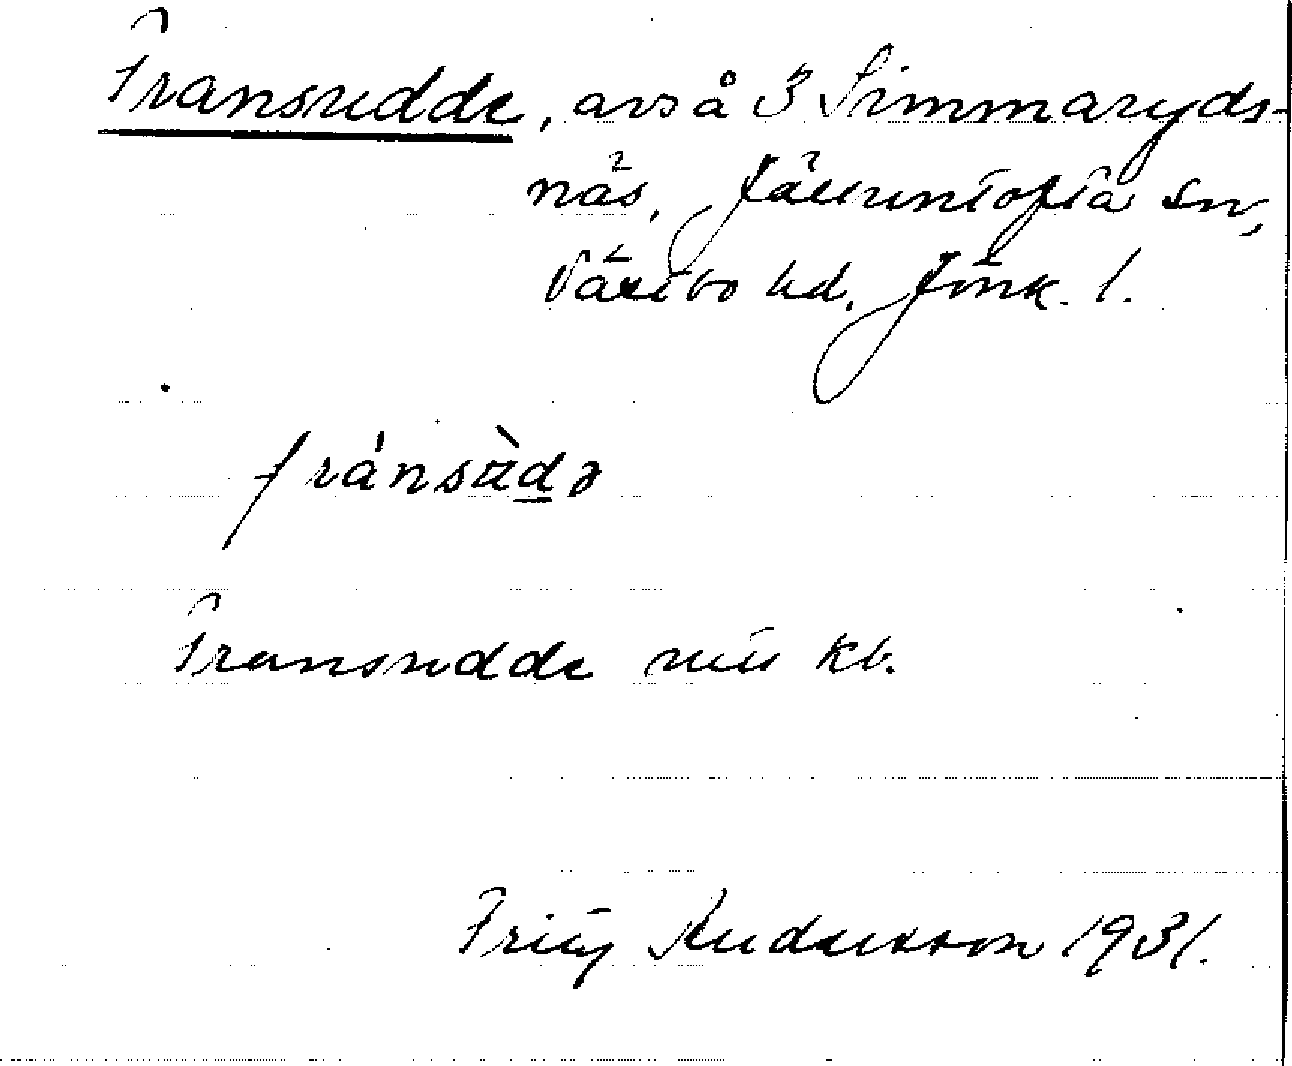 Fransudde, avs å 3 Simmaryds-
näs, Jälluntofta sn,
Västbo hd. Jönk. l.
fránsùdə
Fransudde kb.
Fritz Andersson 1931.